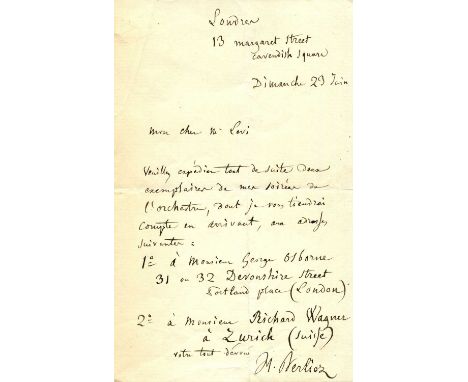 Londres
13 margaret street
cavendish square
Dimanche 29 Juin
Mon cher Mr Levi
Veuillez expédier tout de suite deux
exemplaires de mes soirées de
l'orchestre, dont je vous tiendrai
compte en arrivant, aux adresses
suivantes :
1º à Monsieur George Osborne
31 ou 32 Devonshire Street
Portland place (London)
2º à Monsieur Richard Wagner
à Zurich (Suisse)
votre tout dévoué
H. Berlioz